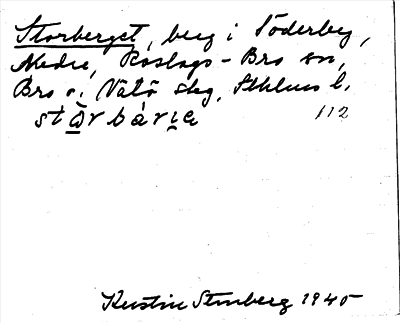 Storberget, berg i Söderby,
Nedre, Roslags-Bro sn,
Bro o. Vätö skg, Sthlms l.
stàrbárịe 112
Kerstin Stenberg 1945